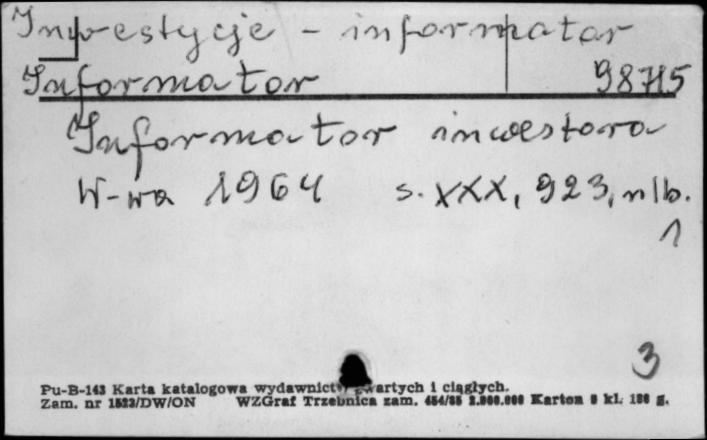 Inwestycje - informator
Informator 98715
Informator inwestora
W-wa 1964 s. XXX, 923, nlb.
1
3
Pu-B-143 Karta katalogowa wydawnictw zwartych i ciągłych.
Zam. nr 1523/DW/ON WZGraf Trzebnica zam. 454/85 2.000.000 Karton kl. g.